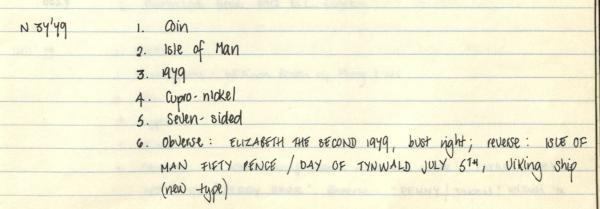 N 37'79 1. Coin
2. Isle of Man
3. 1979
4. Cupro-nickel
5. Seven-sided
6. Obverse: ELIZABETH THE SECOND 1979, bust right; reverse: ISLE OF
MAN FIFTY PENCE / DAY OF TYNWALD JULY 5TH, Viking ship
(new type)